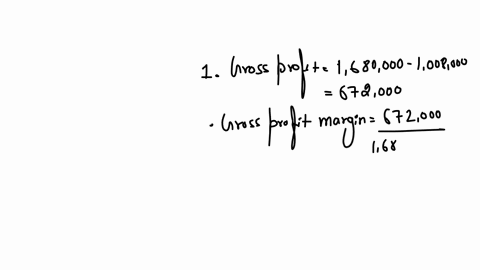 1. Gross profit = 1,680,000 - 1,008,000
= 672,000
. Gross profit margin = 672,000
1,68